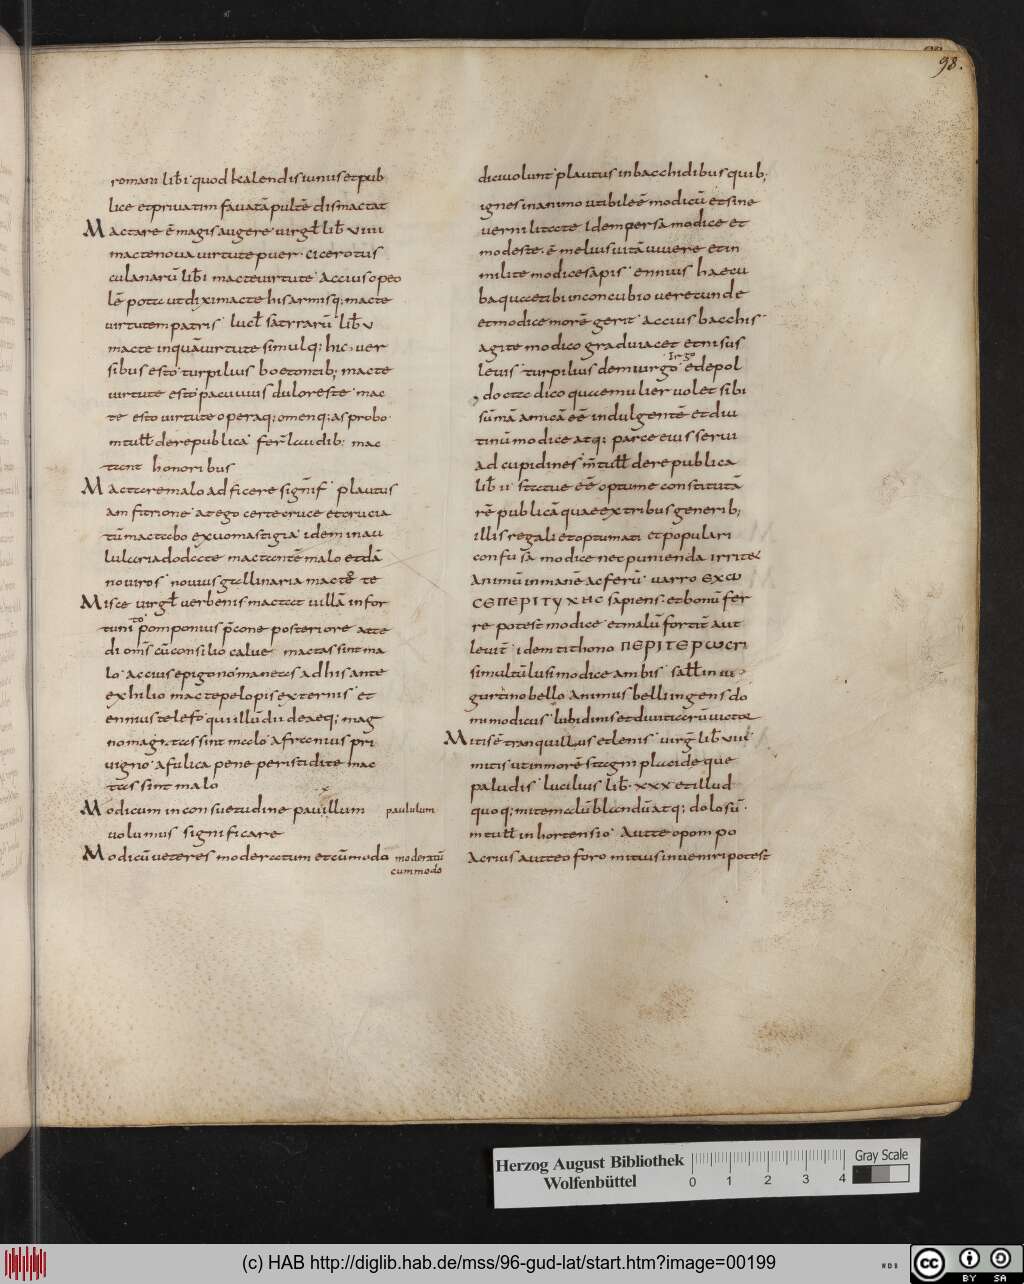 98.
romani lib̄i quod kalendis iuniis et pub
lice et priuatim fauatā pultē dis mactat
Mactare ē magis augere uirgł lib̄ viiii
macte noua uirtute puer · cicero tus
culanarū lib̄ i macte uirtute accius o peo
lē poteut diximacte his armis q; macte
uirtutem patris lucł satrrarū lib̄ v
macte inquā uirtute simulq; his uer
sibus esto turpilius boetontib; macte
uirtute esto pacuuius duloreste mac
te esto uirtute operaq; omenq; as probo
m tułł de republica fer laudib; mac
tant honoribus
Mactare malo adficere signif plautus
amfitrione at ego certe cruce et crucia
tū mactabo exuo mastigia idem in au
lularia dodacte mactantē malo et dā
no uiros nouius gallinaria macte te
Misce uirgł uerbenis mactat uillā infor
tuni to pomponius p̄cone posteriore atte
di om̄s cū consilio calue mactas sint ma
lo accius epigonomanetus ad his ante
exhilio macte pelopis externis et
ennius telefo qui illū dii deaeq; mag
no magi tas sint malo afranius pri
uigno afulica pene peristidite mac
tas sint malo
Modicum in consuetudine pauillum paululum
uolumus significare
Modicū ueteres moderatum et cū modo moderatū
cum modo
dici uolunt plautus in bacchidibus quib;
ignes in animo utibile ē modicū et sine
uerni litate idem persa modice et
modeste · ē melius uitā uiuere et in
milite modice sapis ennius haecu
ba quae tibi in concubio uerecunde
et modice morē gerit accius bacchis
agite modico gradu iacet et nisus
leuis turpilius demiurgo edepol
irgo
do acta dico quae mulier uolet sibi
sūmā amicā eē indulgentē et diu
tinū modice atq; parce eius serui
ad cupidines m̄ tułł de republica
lib̄ ii statue eē optume constitutā
rē publicā quae ex tribus generib;
illis regali et optumati et populari
confusā modice nec punienda irritet
animū inmanē ac ferū uarro εχω
CEΠEPITYXHC sapiens · et bonū fer
re potest modice et malū fortit̄ aut
leuit̄ idem tithono ΠEPITEPωCri
simul tū lusi modice ambis sałł in iu
gurtino bello animus belli ingens do
mi modicus lubidinis et diuitiarū uictor
Mitis ē tranquillus et lenis uirgł lib̄ viii
mitis ut in morē stagni placide que
paludis lucilius lib̄ xxx et illud
quoq; mitem alū blandū atq; dolosū
m tułł in hortensio aut te o pompo
Acrius aut te o foro mitius inueniri potest
Herzog August Bibliothek
Wolfenbüttel
0 1 2 3 4
Gray Scale
(c) HAB http://diglib.hab.de/mss/96-gud-lat/start.htm?image=00199
cc BY SA